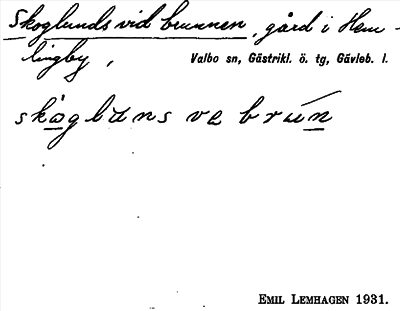 Skoglunds vid brunnen, gård i Hem-
lingby, Valbo sn, Gästrikl. ö. tg, Gävleb. l.
skòglŭns ve brún
EMIL LEMHAGEN 1931.